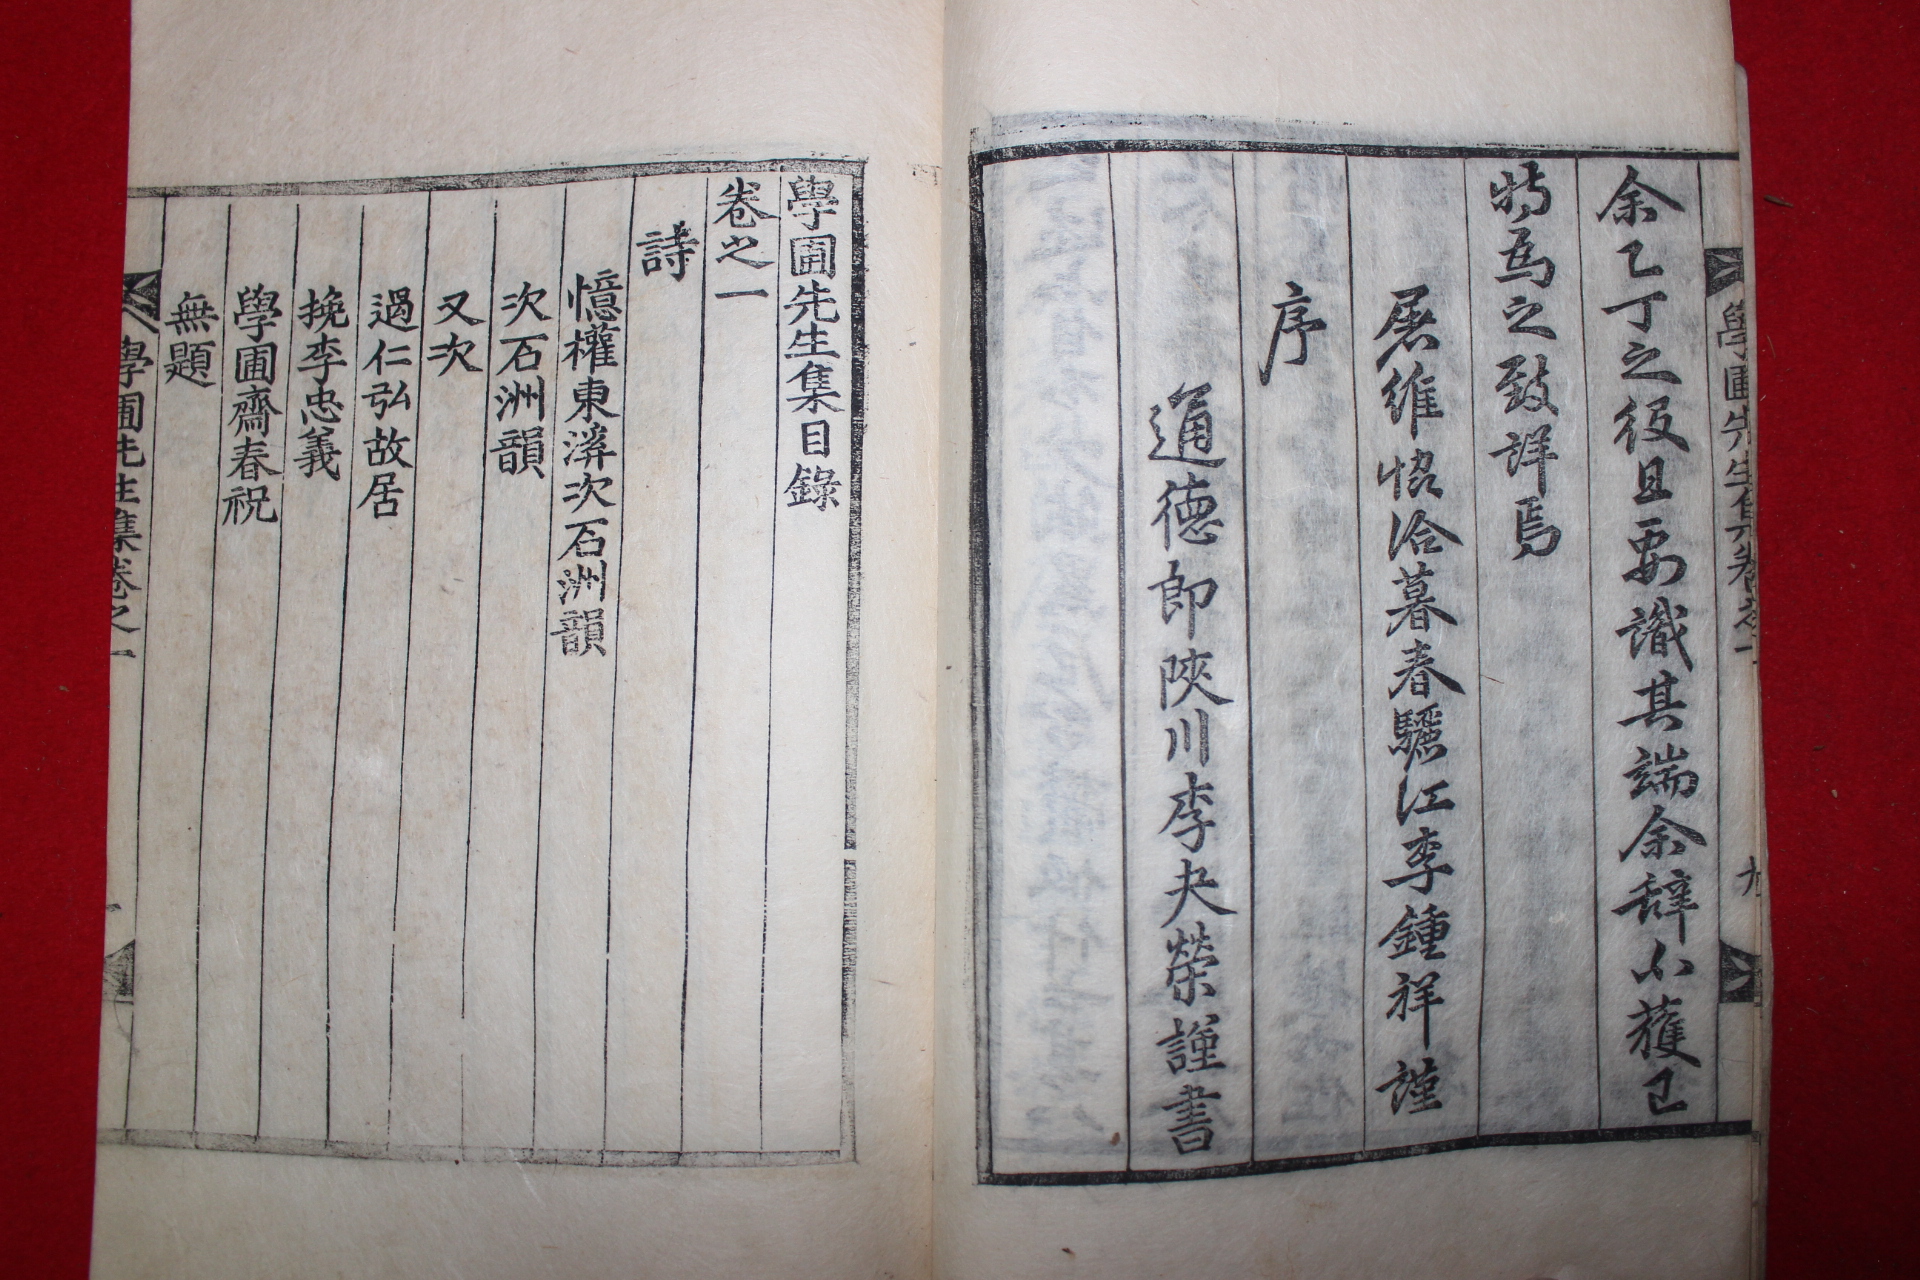 余乙丁之役且要識其端余辭不獲已
特爲之致詳焉
屠維協洽暮春驪江李鍾祥謹
序
通德郎陜川李夬榮謹書
學圃先生集卷之一
九
學圃先生集目錄
卷之一
詩
憶權東溪次石洲韻
次石洲韻
又次
過仁弘故居
挽李忠義
學圃齋春祝
無題
學圃先生集卷之一